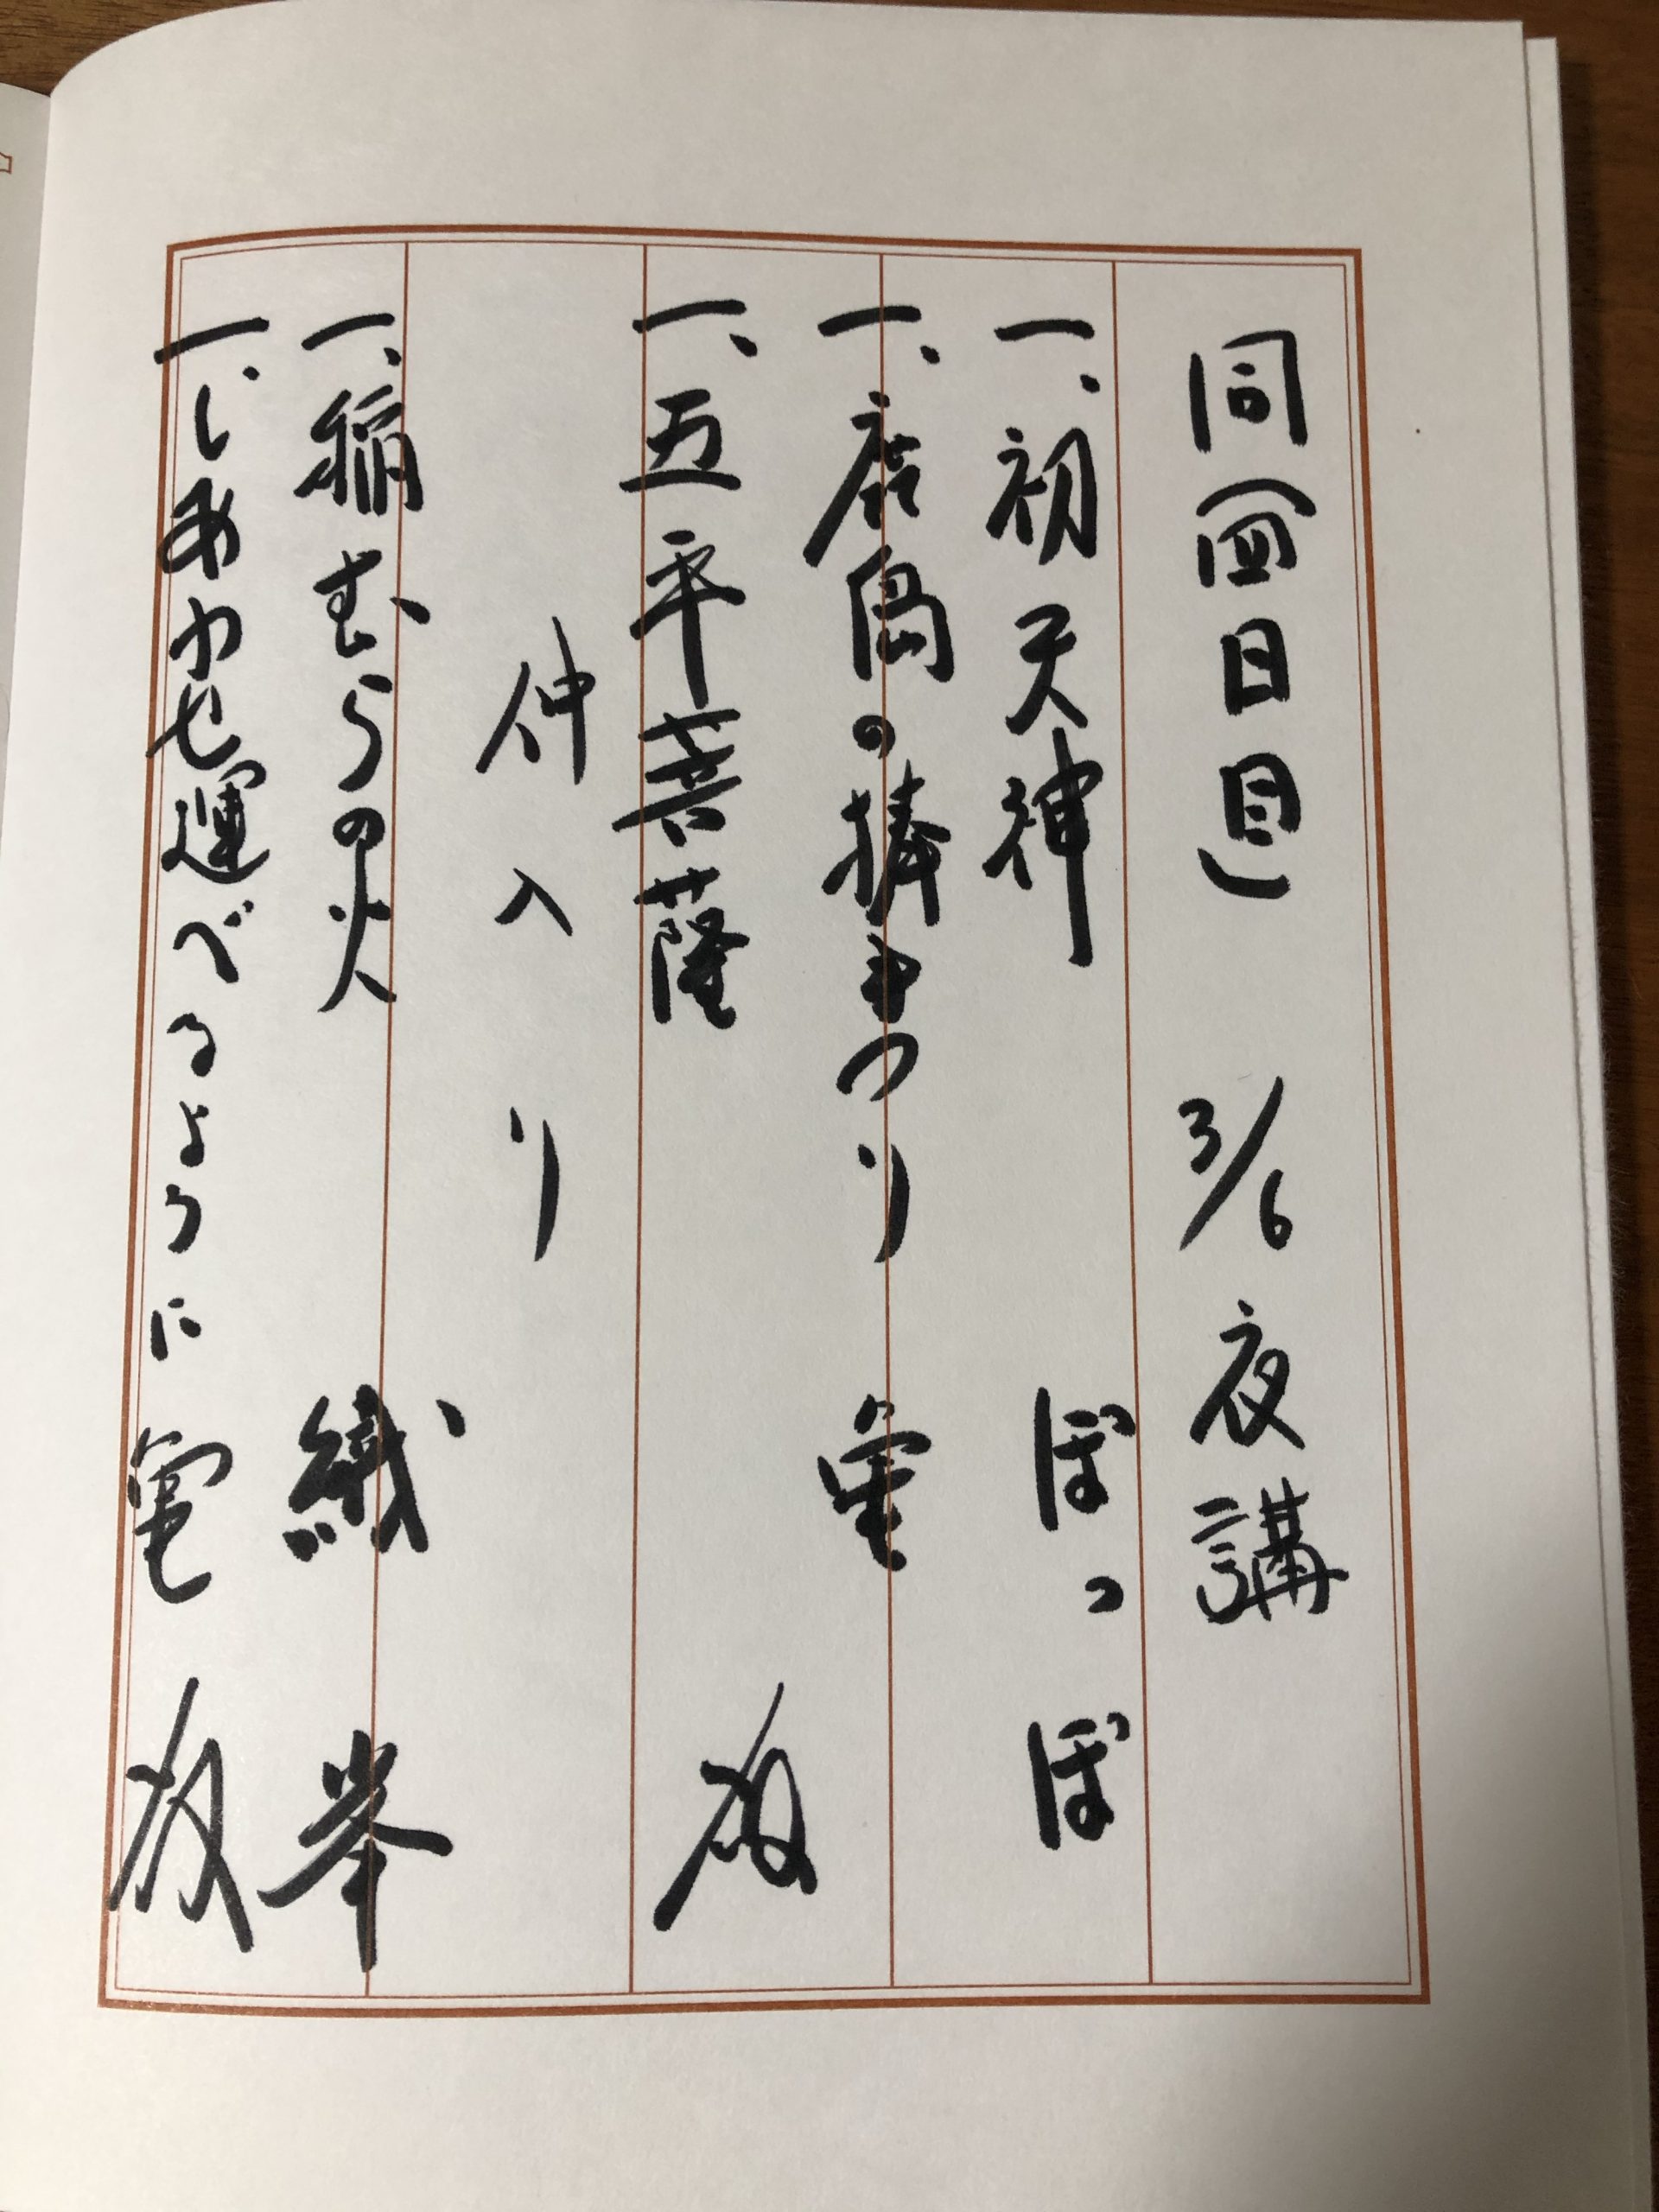 同(四日目) 3/6 夜講
一、初天神 ぽっぽ
一、の棒まつり
一、五平菩薩
仲入り
一、稲むらの火 織
一、しあわせ運べるように